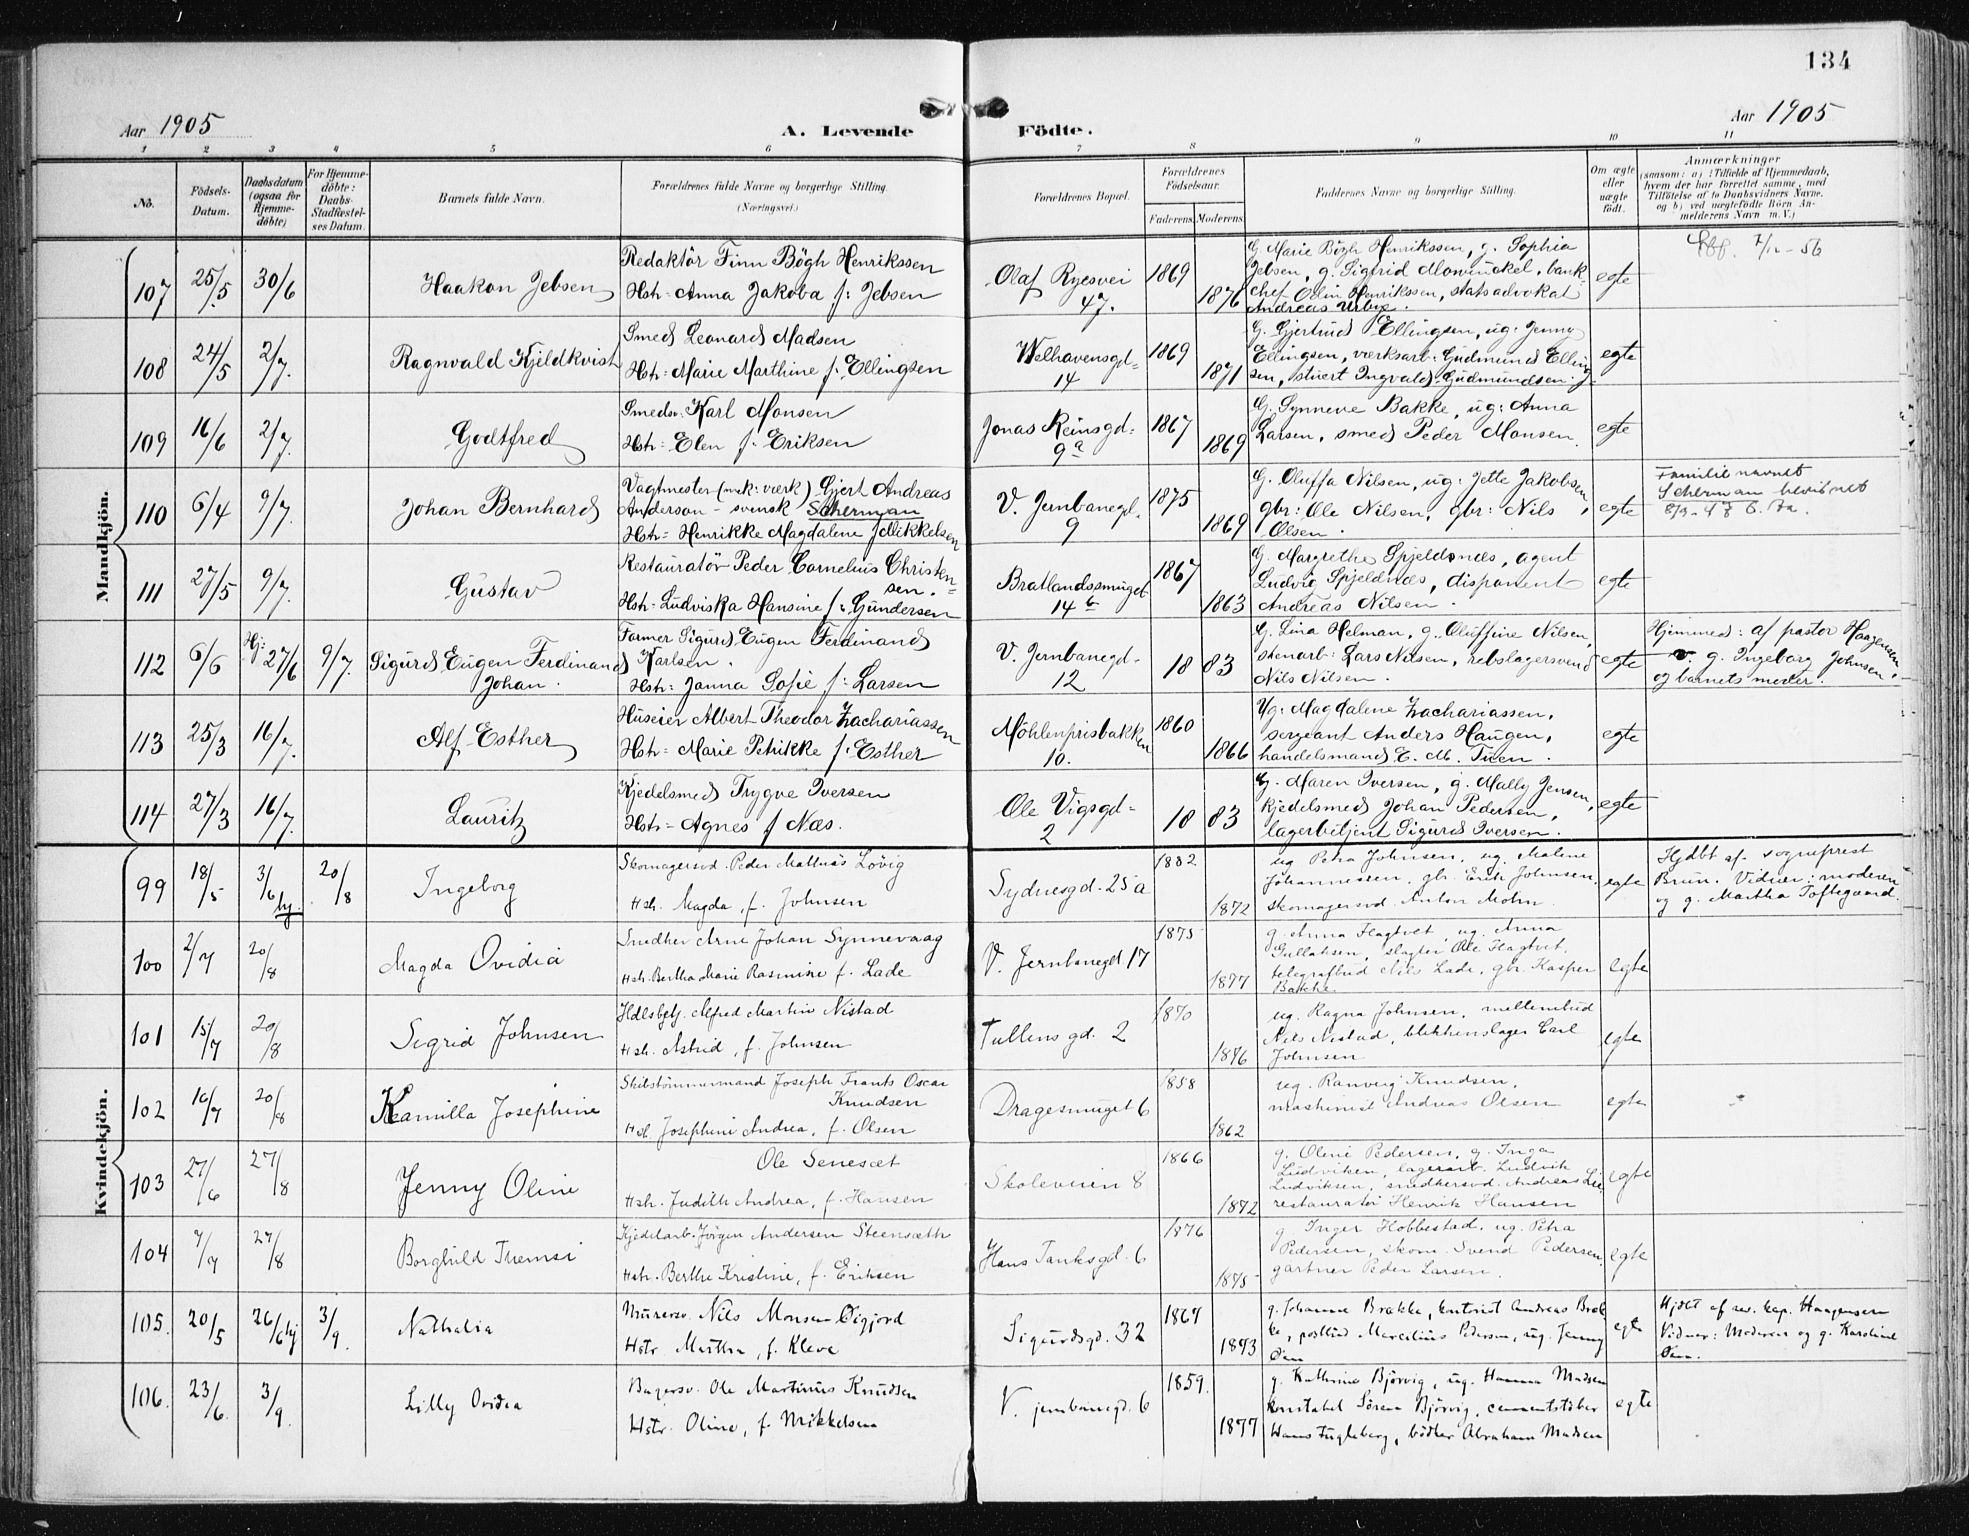 134
Aar 1905
A. Levende Födte.
Aar 1905
1 2 3 4 5 6 7 8 9 10 11
No.
Födsels-Datum.
Daabsdatum (ogsaa for Hjemme-döbte)
For Hjemme-döbte: Daabs-Stadfæstel-ses Datum.
Barnets fulde Navn.
Forældrenes fulde Navne og borgerlige Stilling.
(Næringsvei.)
Forældrenes Bopæl.
Forældrenes Födselsaar.
Faderens Moderens
Faddernes Navne og borgerlige Stilling.
Om ægte eller uægte födt.
Anmærkninger
(saasom: a) i Tilfælde af Hjemmedaab,
hvem der har forrettet samme, med
Tilföielse af to Daabsvidners Navne.
og b) ved uægtefödte Börn An-
melderens Navn m. V.)
Mandkjön.
107 25/5 30/6 Haakon Jebsen
Redaktör Finn Bögh Henrikssen
Hstr: Anna Jakoba f: Jebsen
Olaf Ryesvei 47.
1869 1876
G. Marie Bögh Henrikssen, g. Sophia
Jebsen, g. Sigfrid Mowinckel, bank-
chef Odin Henrikssen, statsadvokat
Andreas Urbye.
egte
7/11-56
108 24/5 2/7. Ragnvald Kjeldkvist
Smed Leonard Madsen
Hstr: Marie Marthine f: Ellingsen
Welhavensgd. 14
1869 1871
G. Gjertrud Ellingsen, ug: Jenny
Ellingsen, værksarb: Gudmund Elling-
sen, stuert Ingvald Gudmundsen.
egte
109 16/6 2/7. Godtfred
Smedsv: Karl Monsen
Hstr: Elen f: Eriksen
Jonas Reinsgd: 9a
1867 1869
G. Synneve Bakke, ug: Anna
Larsen, smed Peder Monsen.
egte
110 6/4 9/7. Johan Bernhard
Vagtmester (mek: værk) Gjert Andreas
Anderson - svensk Scherman
Hstr: Henrikke Magdalene f. Mikkelsen
V. Jernbanegd. 9
1875 1869
G. Oluffa Nilsen, ug: Jette Jakobsen,
gbr: Ole Nilsen, gbr: Nils
Olsen.
egte
Familienavnet
Scherman bevilget
111 27/5 9/7. Gustav
Restauratör Peder Cornelius Christen-
sen.
Hstr: Ludviska Hansine f: Gundersen
Bratlandssmuget 14b
1867 1863
G. Margrethe Spjeldsnæs, agent
Ludvig Spjeldnæs, disponent
Andreas Nilsen.
egte
112 6/6 Hj: 27/6 9/7. Sigurd Eugen Ferdinand
Johan.
Former Sigurd Eugen Ferdinand
Karlsen.
Hstr: Janna Sofie f: Larsen
V. Jernbanegd. 12
18 83
G. Lina Helman, g. Oluffine Nilsen,
stenarb: Lars Nilsen, rebslagersvend
Nils Nilsen.
egte
Hjemmed: af pastor Haagensen
v. g. Ingeborg Johnsen,
og barnets moder.
113 25/3 16/7. Alf Esther
Huseier Albert Theodor Zachariassen
Hstr: Marie Petrikke f: Esther
Möhlenprisbakken 10.
1860 1866
Ug: Magdalene Zachariassen,
sergeant Anders Haugen,
handelsmand E. M. Tuen.
egte
114 27/3 16/7. Lauritz
Kjedelsmed Trygve Iversen
Hstr: Agnes f Næs.
Ole Vigsgd. 2
18 83
G. Maren Iversen, g. Mally Jensen,
kjedelsmed Johan Pedersen,
lagerbetjent Sigurd Iversen.
egte
Kvindekjön.
99 18/5 3/6 hj. 20/8 Ingeborg
Skomagersvd. Peder Mathias Lövig
Hstr. Magda, f. Johnsen
Sydnesgd. 25a
1882 1872
ug Petra Johnsen, ug. Malene
Johannessen, gbr. Erik Johnsen,
skomagersvd. Anton Mohn.
egte
Hjdbt af. sogneprest
Brun. Vidner: moderen
og g. Martha Toftegaard.
100 2/7 20/8 Magda Ovidia
Snedker Arne Johan Synnevaag
Hstr. Bertha Marie Rasmine f. Lade
V. Jernbanegd 17
1875 1877
g. Anna Hagtvet, ug. Anna
Gullaksen, slagter Ole Hagtvet,
telegrafbud Nils Lade, gbr. Kasper
Bakke.
egte
101 15/7 20/8 Sigrid Johnsen
Hdlsbetj. Alfred Martin Nistad
Hstr. Astrid, f. Johnsen
Tullensgd. 2
1870 1876
ug. Ragna Johnsen, mellembud
Nils Nistad, blikkenslager Carl
Johnsen
egte
102 16/7 20/8 Kamilla Josephine
Skibstömmermand Joseph Frants Oscar
Knudsen
Hst. Josephine Andrea, f. Olsen
Dragesmuget 6
1858 1862
ug. Ranveig Knudsen,
maskinist Andreas Olsen
egte
103 27/6 27/8 Jenny Oline
Ole Senesæt
Hstr. Judith Andrea, f. Hansen
Skoleveien 8
1866 1872
g. Oline Pedersen, g. Inga
Ludviksen, lagerarb. Ludvik
Ludviksen, snedkersvd. Andreas Lie,
restauratör Henrik Hansen
egte
104 7/7 27/8 Borghild Themsi
Kjedelarb. Jörgen Andersen Steensæth
Hstr. Berthe Kristine, f. Eriksen
Hans Tanksgd. 6
1876 1875
g. Inger Hobbestad, ug. Petra
Pedersen, skom. Svend Pedersen,
gartner Peder Larsen.
egte
105. 20/5 26/6 hj 3/9. Nathalia
Murersv. Nils Monsen Öigjord
Hstr. Martha, f. Kleve
Sigurdsgd. 32
1867 1873
g. Johanna Brække, kontorist Andreas Bræk-
ke, postbud Marcelius Pedersen, ug. Jenny
Öien
egte
Hjdbt af res. kap. Haagensen
Vidner: Moderen og g. Karoline
Öien.
106. 23/6. 3/9. Lilly Ovidea
Bagersv. Ole Martinus Knudsen
Hstr. Oline, f. Mikkelsen
V. jernbanegd. 6
1859. 1877
g. Kathrine Björvig, ug. Hanna Madsen
konstabel Sören Björvig, cementstöber
Hans Fugleberg, bödker Abraham Madsen
egte